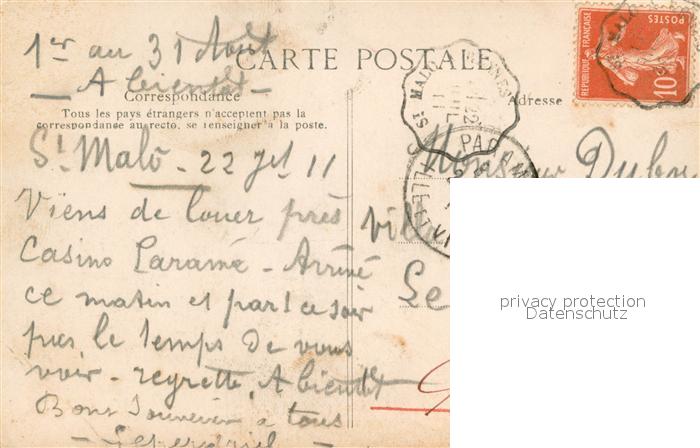 1er au 31 Août
A bientôt -
CARTE POSTALE
Correspondance
Tous les pays étrangers n'acceptent pas la
correspondance au recto, se renseigner à la poste.
Adresse
REPUBLIQUE FRANÇAISE
POSTES
10
St Malo - 22 Jet 11
Viens de louer près
Casino Paramé - Arrivé
ce matin et pars ce soir
pas le temps de vous
voir - regrette, A bientôt
Bons Souvenirs à tous
Monsieur
Villa
Le
privacy protection
Datenschutz